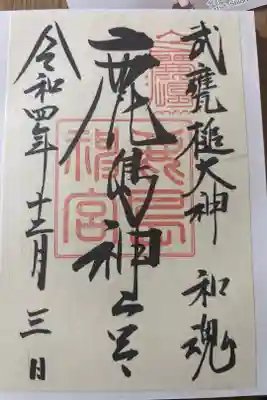 武甕槌大神 和魂
鹿島神宮
鹿島神宮
令和四年十二月三日